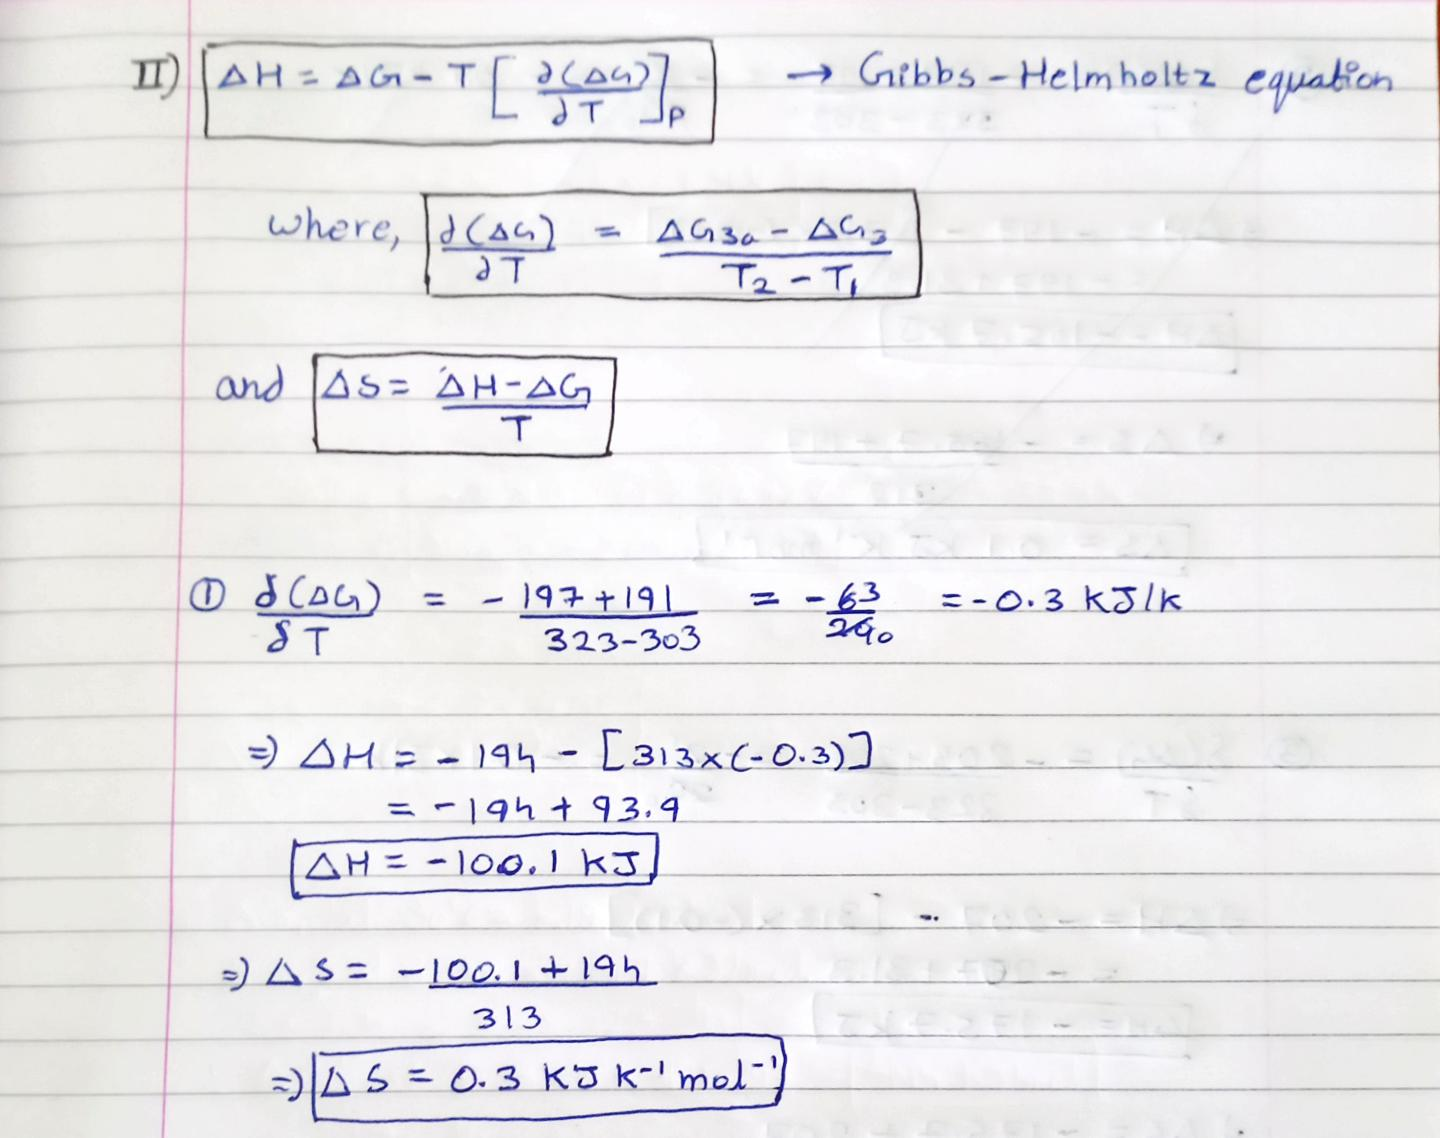 II) ΔH = ΔG - T [ ∂(ΔG) / ∂T ]p → Gibbs - Helmholtz equation
where, ∂(ΔG) / ∂T = ΔG30 - ΔG3 / T2 - T1
and ΔS = ΔH - ΔG / T
① δ(ΔG) / δT = - 197 + 191 / 323 - 303 = - 63 / 200 = - 0.3 KJ/K
⇒) ΔH = - 194 - [313 x (- 0.3)]
= - 194 + 93.9
ΔH = - 100.1 KJ
⇒) ΔS = - 100.1 + 194 / 313
⇒) ΔS = 0.3 KJ K-1 mol-1